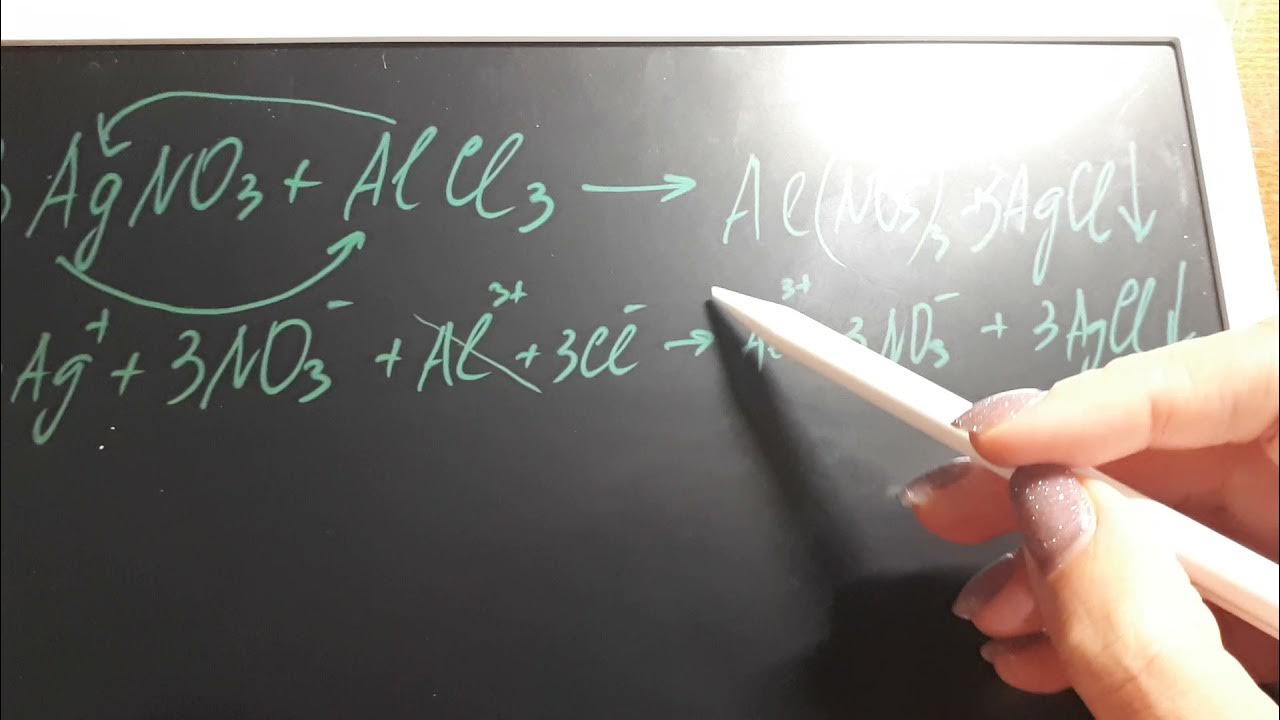 AgNO₃ + AlCl₃ → Al(NO₃)₃ + 3AgCl↓
Ag⁺ + 3NO₃⁻ + Al³⁺ + 3Cl⁻ → Al³⁺ 3NO₃⁻ + 3AgCl↓